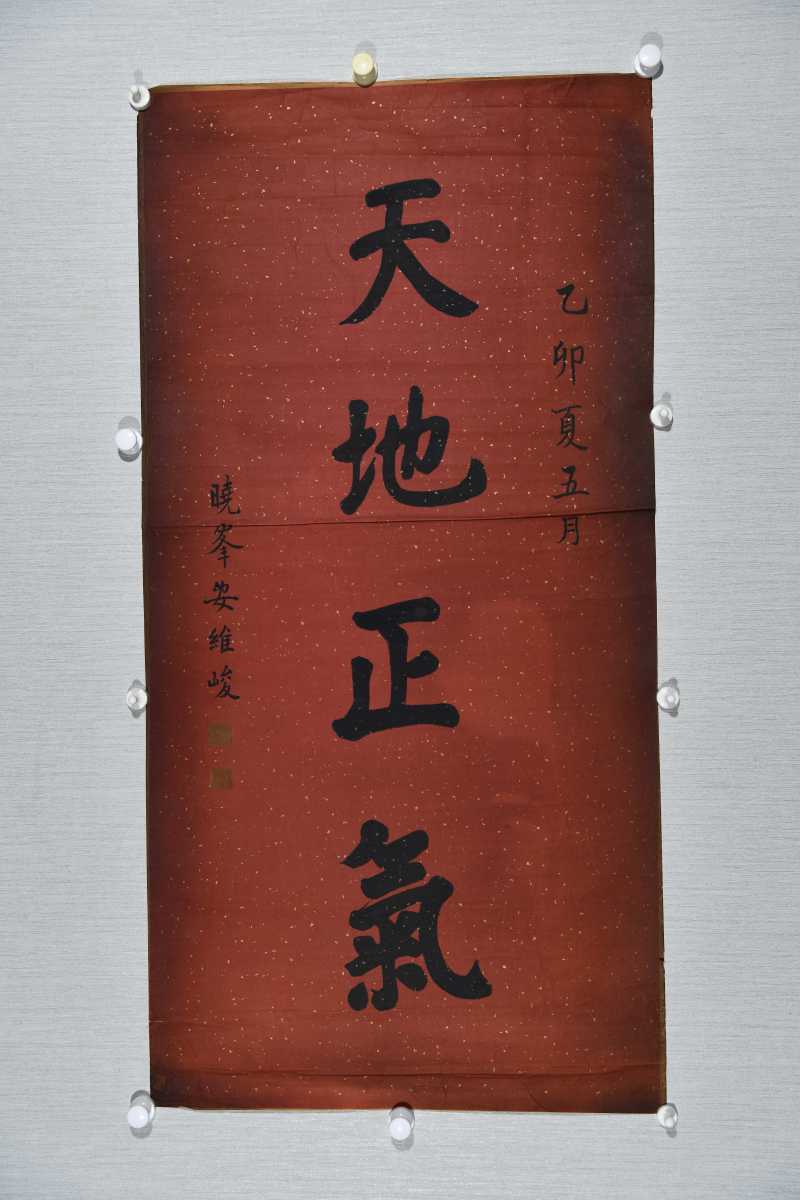 乙卯夏五月
天地正氣
曉峯安維峻